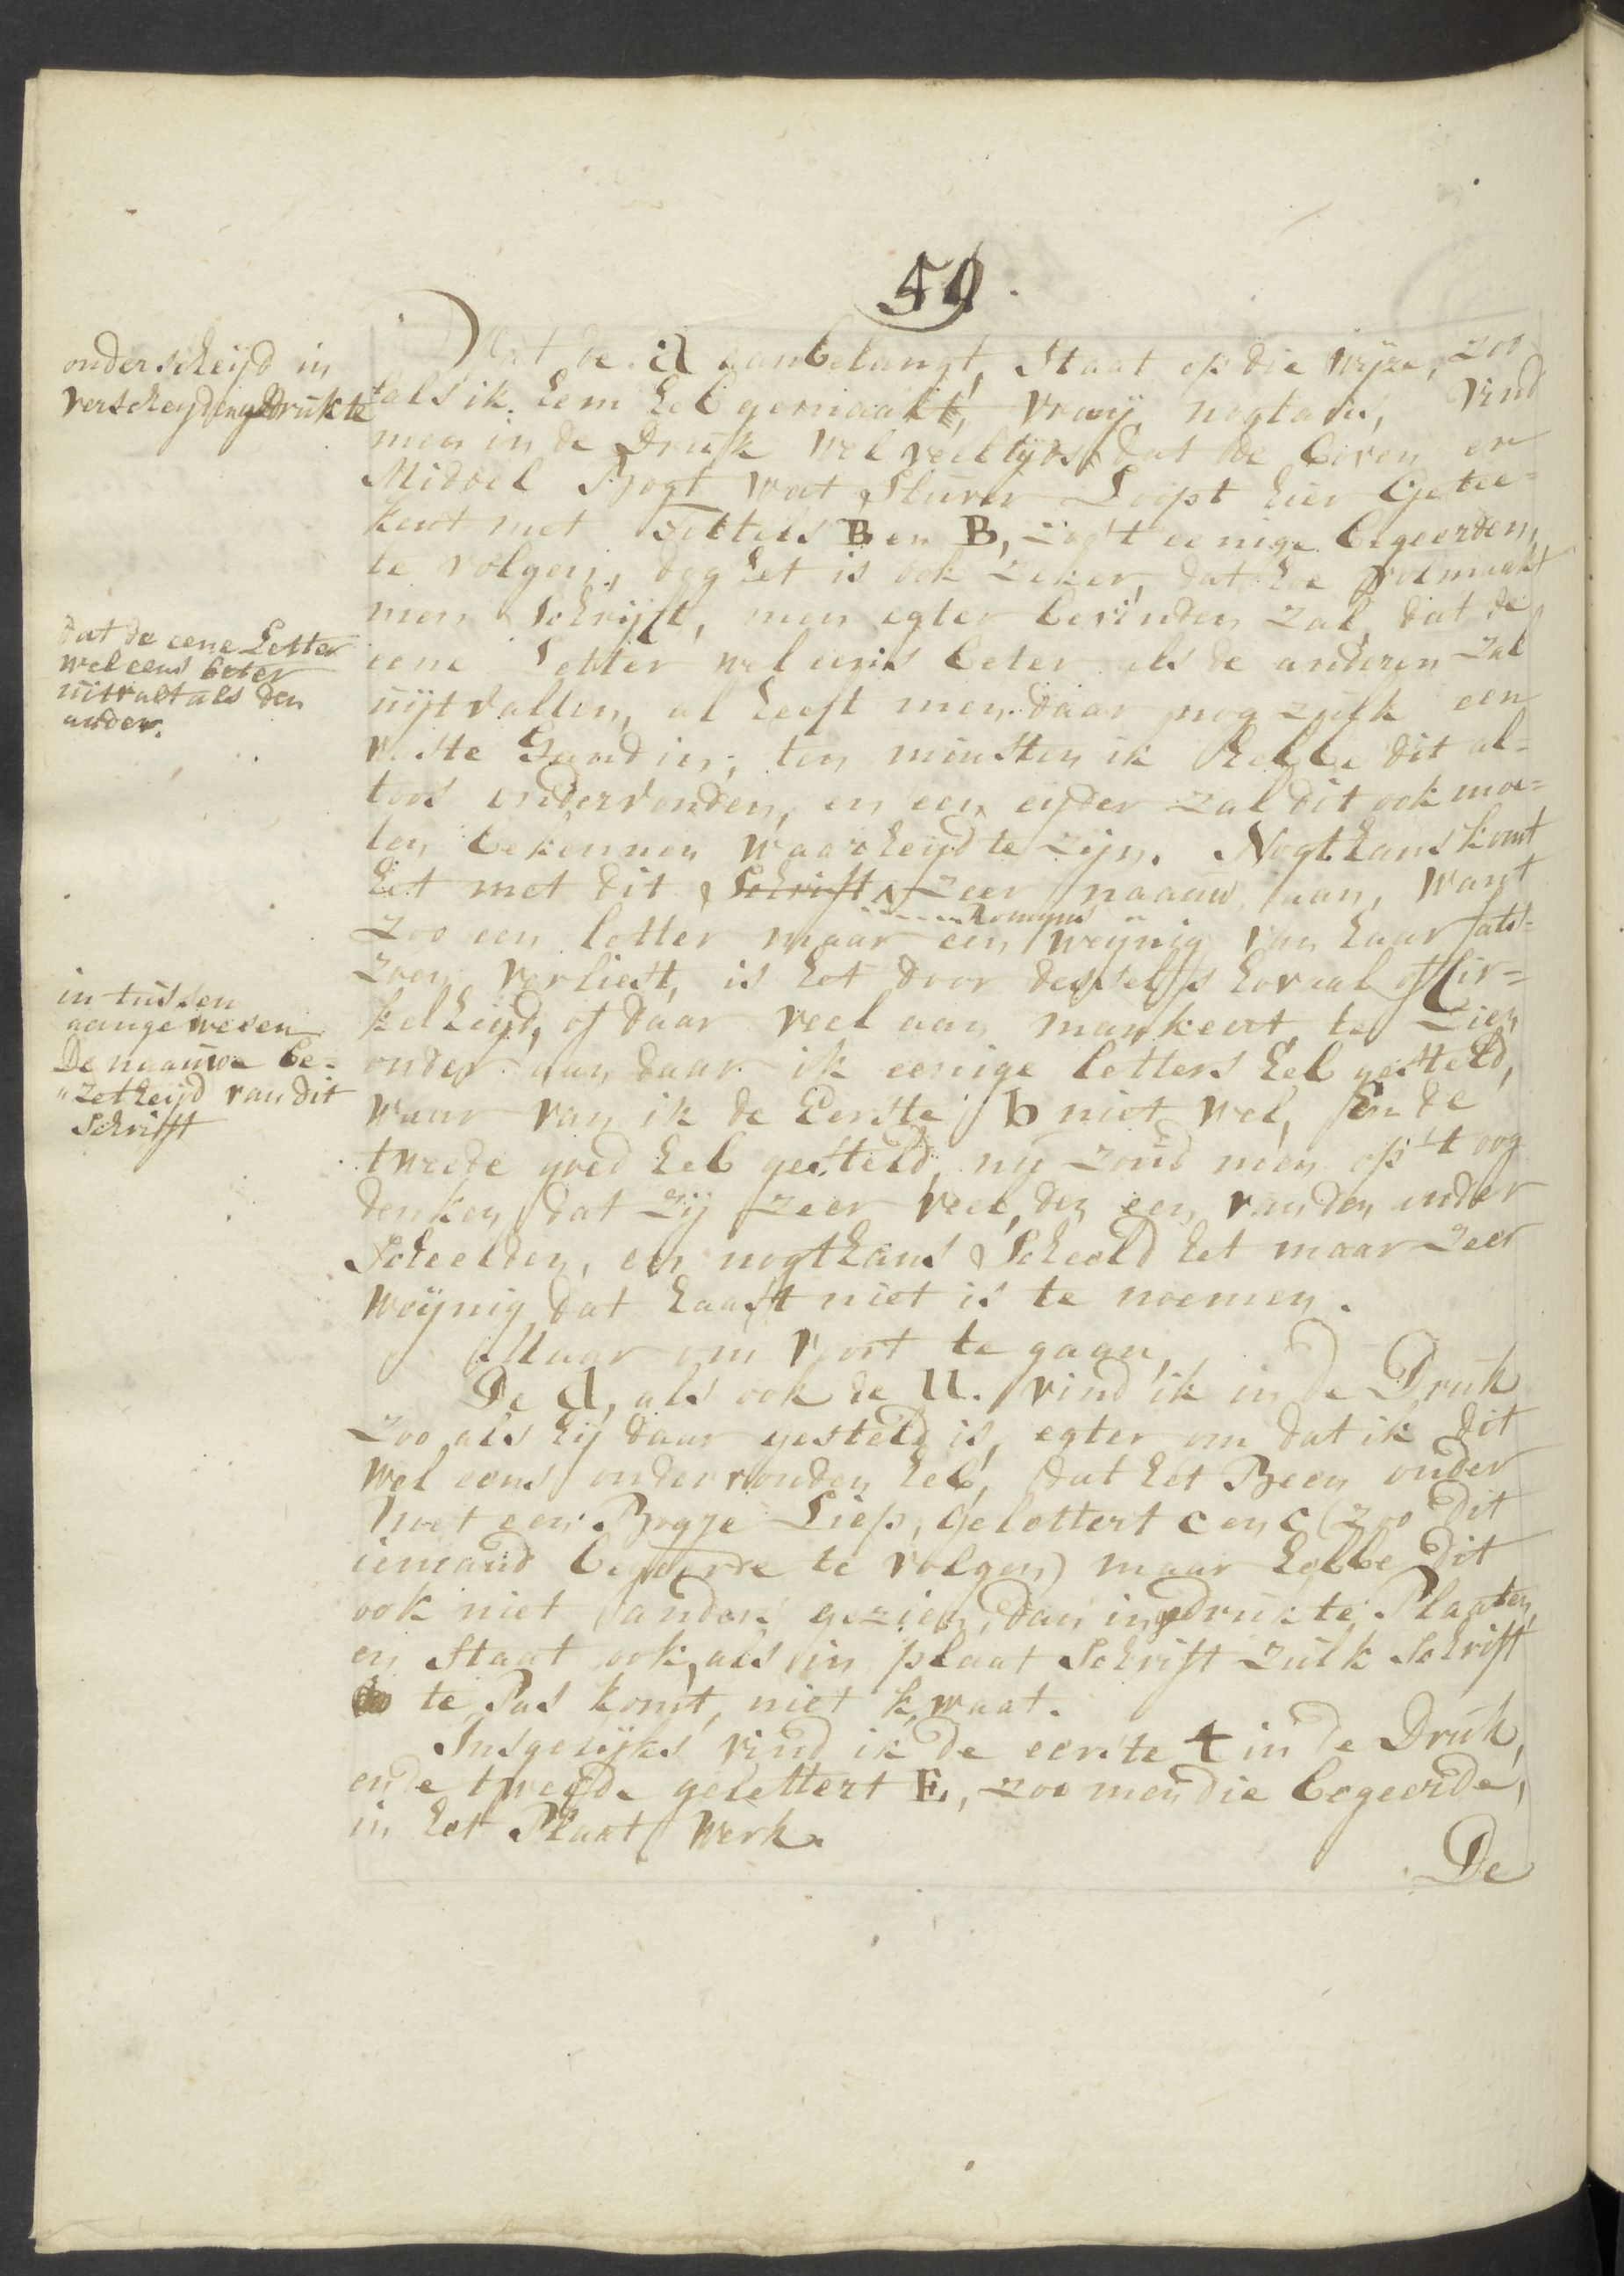 59.
onderscheijd in
verscheyden gedrukte
Wat de a aanbelangt, Staat op die wijze, zoo
als ik hem heb gemaakt, vraaij, nogtans, vind
men in de Druk wel veeltijds dat de boven en
Middel Bogt wat Sturer Loopt hier Getee=
kent met Letters B en B, zoo 't eenige begeerden,
te volgen, dog het is ook zeker, dat hoe volmaakt
men Schrijft, men egter bevinden zal, dat de
dat de eene Letter
wel eens beter
uitvalt als den
ander.
eene Letter wel eens beter als de anderen zal
uijtvallen, al heeft men daar nog zulk een
vaste Hand in, ten minsten ik hebbe dit al=
toos ondervonden, en een eijder zal dit ook moe=
ten bekennen Waarheijd te zijn. Nogthans komt
het met dit Schrift zeer naauw aan, want
Romeyns
zoo een letter maar een weijnig van haar fats=
zoen verliest, is het door desselfs hovaal of Cir=
in tussen
aangewesen
De naauwe be=
"zetheijd van dit
Schrifft
kelheijd, of daar veel aan mankeert, te zien
onder aan daar ik eenige letters heb gesteld,
waar van ik de Eerste b niet wel, En de
tweede goed heb gesteld, nu zoud men op 't oog
denken dat zij zeer veel, den een van den ander
Scheelden, en nogthans Scheeld het maar zeer
weijnig dat haast niet is te noemen.
Maar om voort te gaan,
De d, als ook de u. vind ik in de Druk
zoo als hij daar gesteld is, egter om dat ik dit
wel eens ondervonden heb, dat het Been onder
met een Bogje Liep, Gelettert c en c (zoo dit
iemand begeerde te volgen) maar hebbe dit
ook niet anders gezien, dan in gedrukte Plaaten,
en Staat ook, als in plaat Schrift zulk Schrift
te Pas komt, niet kwaat.
Insgelijks vind ik de eerste t in de Druk,
en de tweede gelettert E, zoo men die begeerde,
in het Plaat Werk.
De